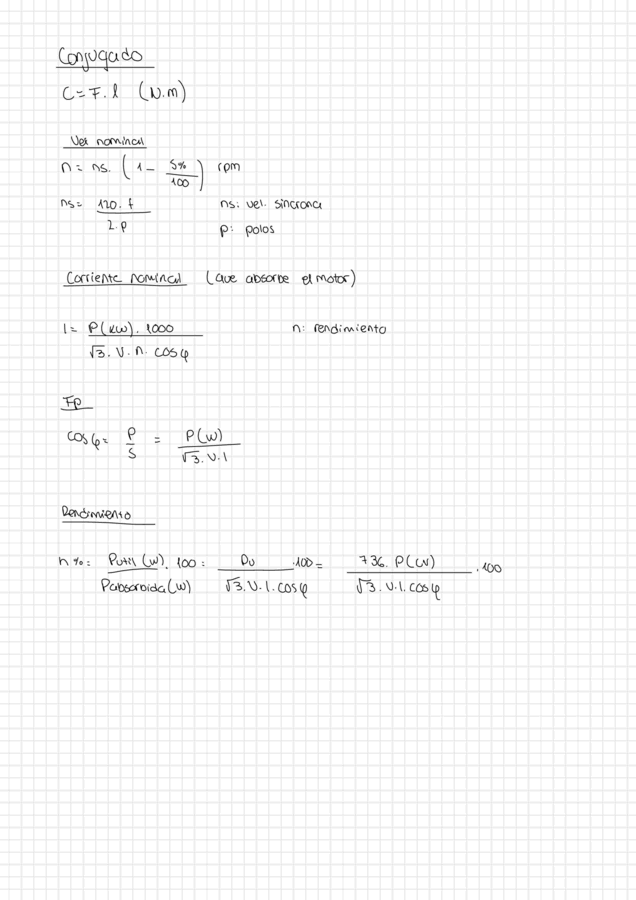 Conjugado
C = F. l (N.m)
Vel nominal
n = ns. (1 - S% / 100) rpm
ns = 120. f / 2. p ns: vel. sincrona
p: polos
Corriente nominal (que absorbe el motor)
I = P(kW). 1000 / √3. V. n. cosφ n: rendimiento
Fp
cosφ = P / S = P(W) / √3. V. I
Rendimiento
n %= Putil (W). 100 = Pu / √3. V. I. cosφ .100 = 736. P(CV) / √3. V. I. cosφ .100
Pabsorbida (W)